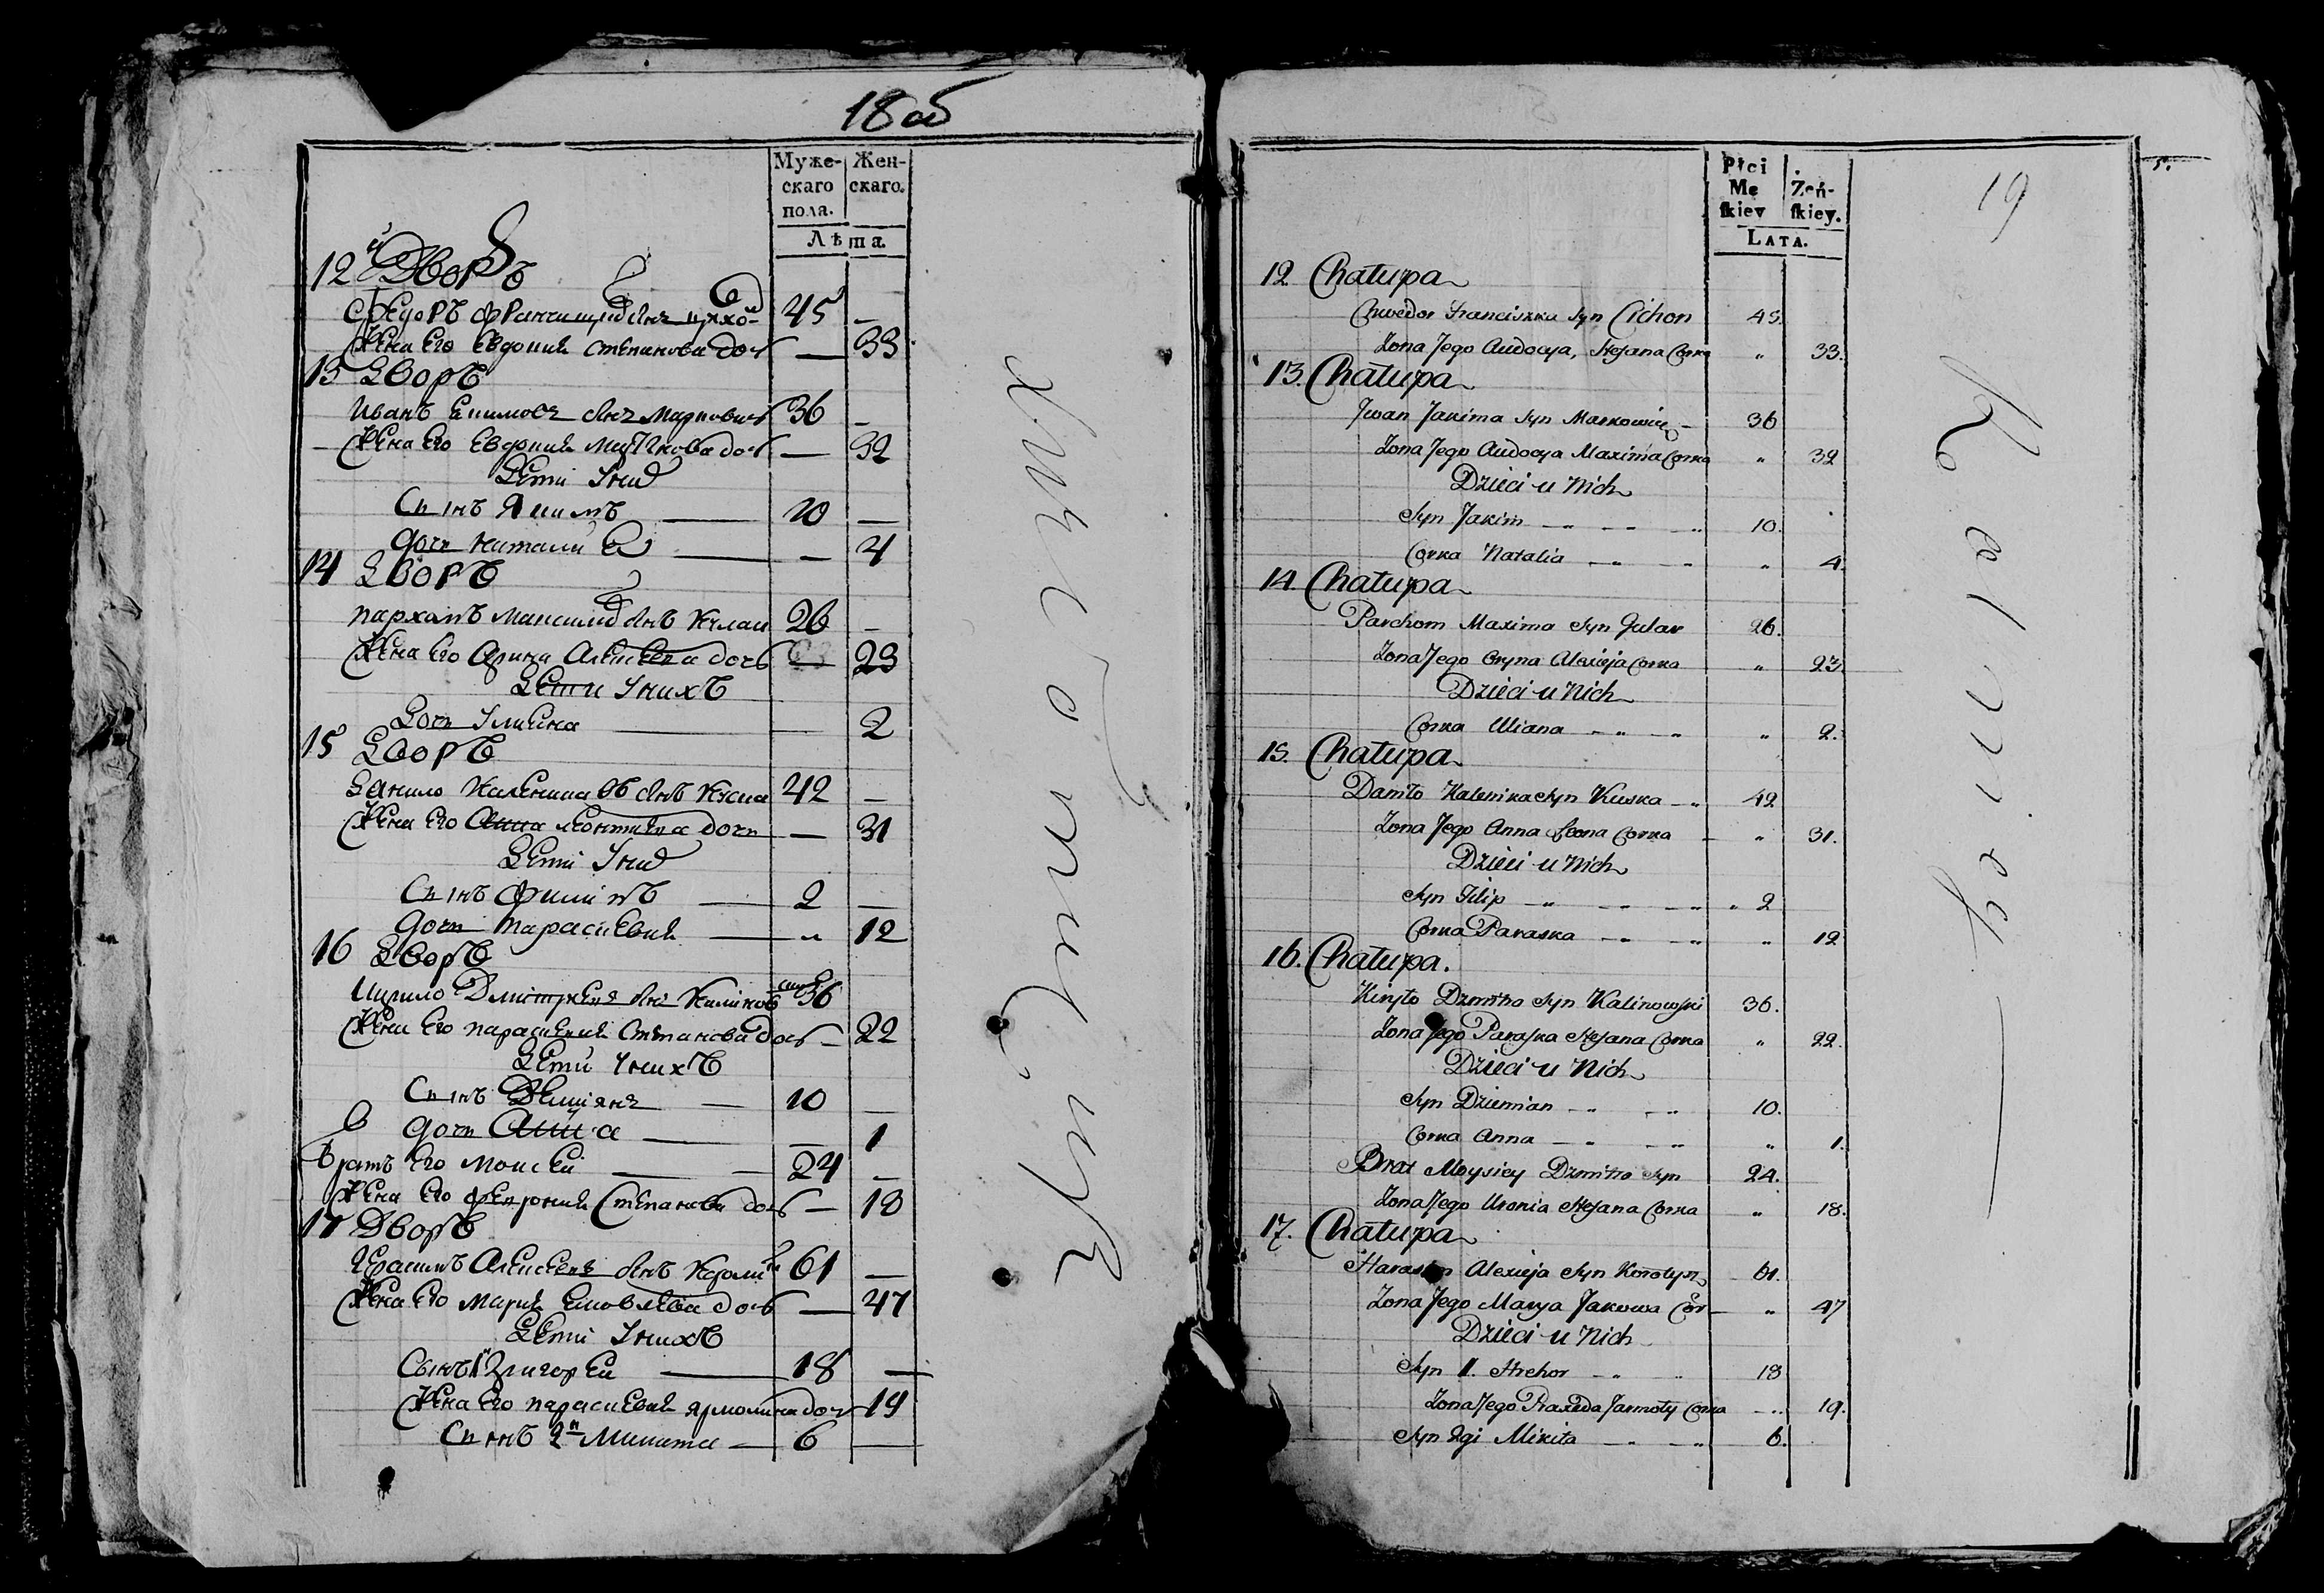 18 об
Муже-
скаго
пола.
Жен-
скаго.
Лѣта.
12й Дворъ
Федоръ Францишковъ Сынъ Цихо 45 —
Жена Его Евдокия Степанова дочь — 33
13 Дворъ
Иванъ Екимовъ Сынъ Марковичъ 36 —
Жена Его Евдокия дочь — 32
Дети У них
Сынъ Якимъ — 10 —
дочь Наталия — — 4
14 Дворъ
Пархомъ Максимовъ Сынъ 26 —
Жена Его Арина Алексеева дочь — 23
Дети У нихъ
Дочь Улияна — — 2
15 Дворъ
Данило Калеников Сынъ Куска 42 —
Жена Его Анна Леонтиева дочь — 31
Дети У них
Сынъ Филипъ — 2 —
дочь Парасковия — „ 12
16 Дворъ
Кирило Дмитриевъ Сынъ Калиновский 36
Жена Его Парасковия Степанова дочь — 22
Дети У нихъ
Сынъ Демиянъ — 10 —
дочь Анна — — 1
Братъ Его Моисей — 24 —
Жена Его Степанова дочь — 18
17 Дворъ
Герасимъ Алексеевъ Сынъ 61 —
Жена Его Мария Яковлева дочь — 47
Дети У нихъ
Сынъ 1й Григорей — 18 —
Жена Его Парасковия Ярмолина дочь 19
Сынъ 2й Микита — 6 —
Płci
Mę
ſkiey
Żeń-
ſkiey.
LATA.
19
5.
12 Chałupa
Chwedor Franciszka Syn Cichon 45.
Żona Jego Audocya, Stefana Corka „ 33.
13. Chałupa
Jwan Jakima Syn Markowicz – 36
Żona Jego Audocya Maxima Corka „ 32
Dzieci u Nich
Syn Jakim – „ – „ 10.
Corka Natalia – „ – „ 4.
14. Chałupa
Parchom Maxima Syn Gular 26.
Żona Jego Oryna Alexieja Corka „ 23.
Dzieci u Nich
Corka Uliana – „ – „ „ 2.
15. Chałupa
Daniło Kalenika Syn Kuska – „ 42
Żona Jego Anna Leona Corka – „ 31.
Dzieci u Nich
Syn Filip – „ – „ – „ 2
Corka Paraska – „ – „ „ 12
16. Chałupa.
Kiryło Dzmitra Syn Kalinowski 36.
Żona Jego Paraska Stefana Corka „ 22.
Dzieci u Nich
Syn Dziemian – „ – „ 10.
Corka Anna – „ – „ „ 1.
Brat Moysiey Dzmitra Syn 24.
Żona Jego Uronia Stefana Corka „ 18.
17. Chałupa
Harasim Alexieja Syn 61.
Żona Jego Marya Jakowa Cor – „ 47
Dzieci u Nich
Syn 1. Hrehor – „ „ 18
Żona Jego Praxeda Jarmoły Corka – „ 19.
Syn 2gi Mikita – „ – „ 6.